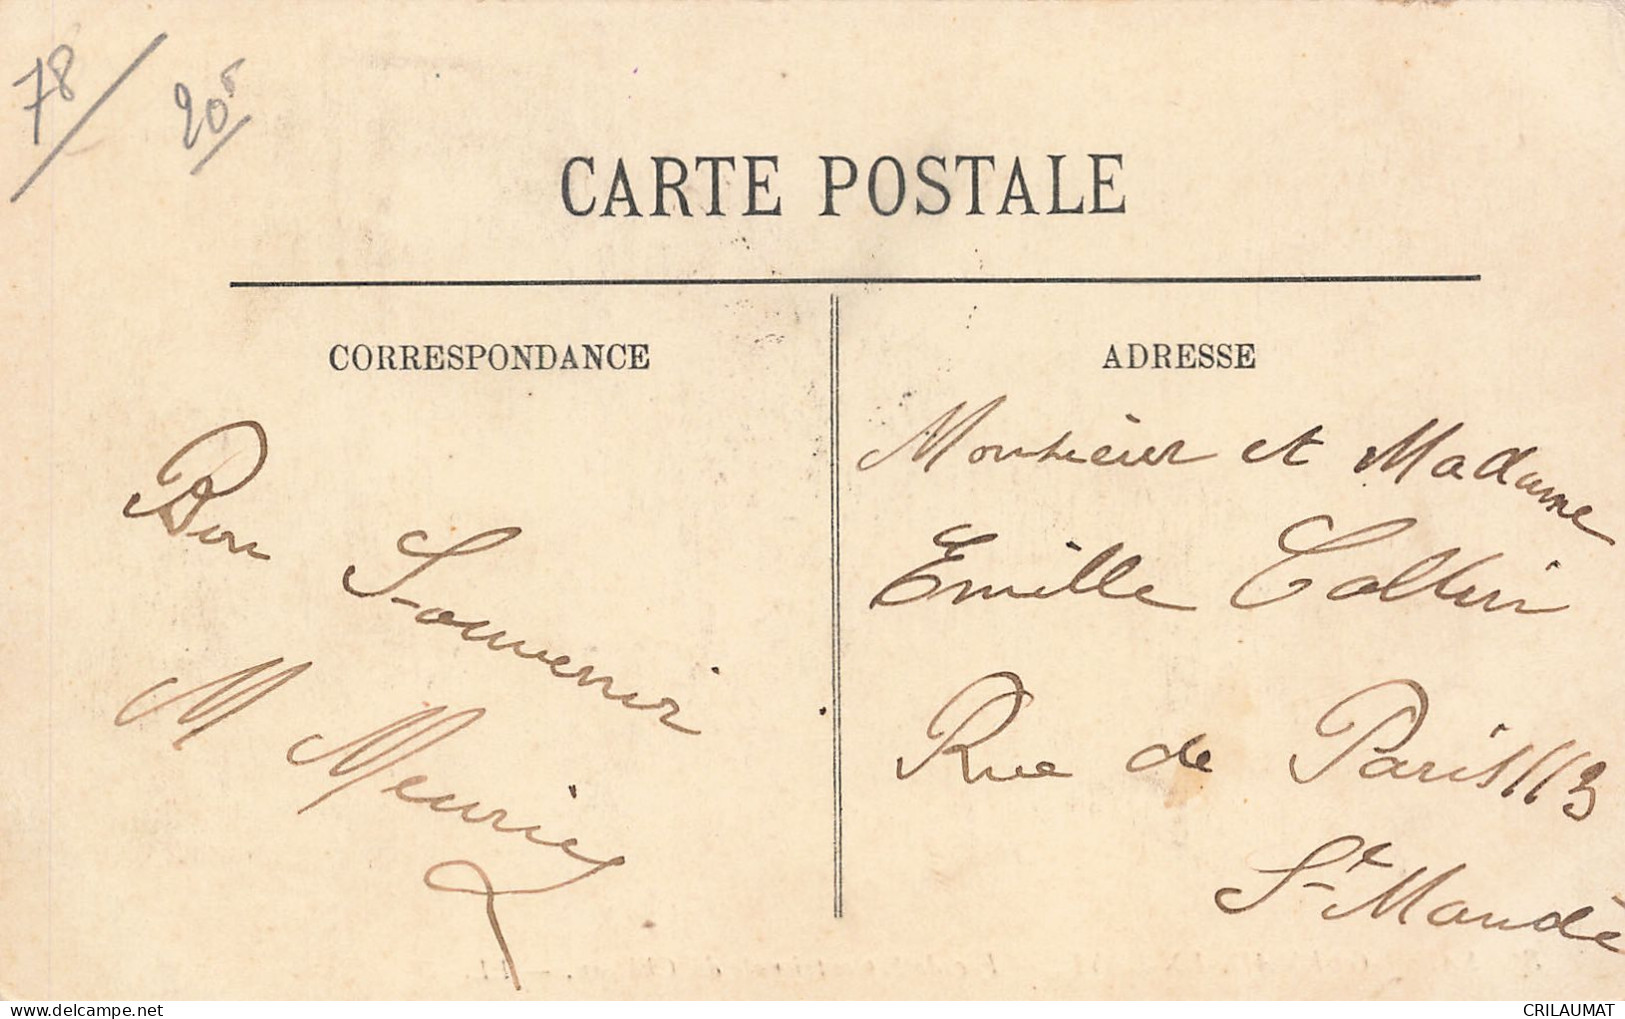 78/
20
CARTE POSTALE
CORRESPONDANCE
ADRESSE
Bon
Souvenir
M Meuriez
Monsieur et Madame
Emille Collin
Rue de Paris 113
St Mandé
CRILAUMAT